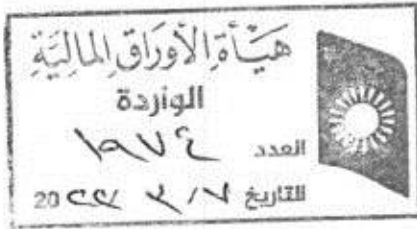 هَيْأَةُ الأَوْرَاقِ المَالِيَّةِ
الواردة
العدد ١٩٧٤
التاريخ 20٢٢